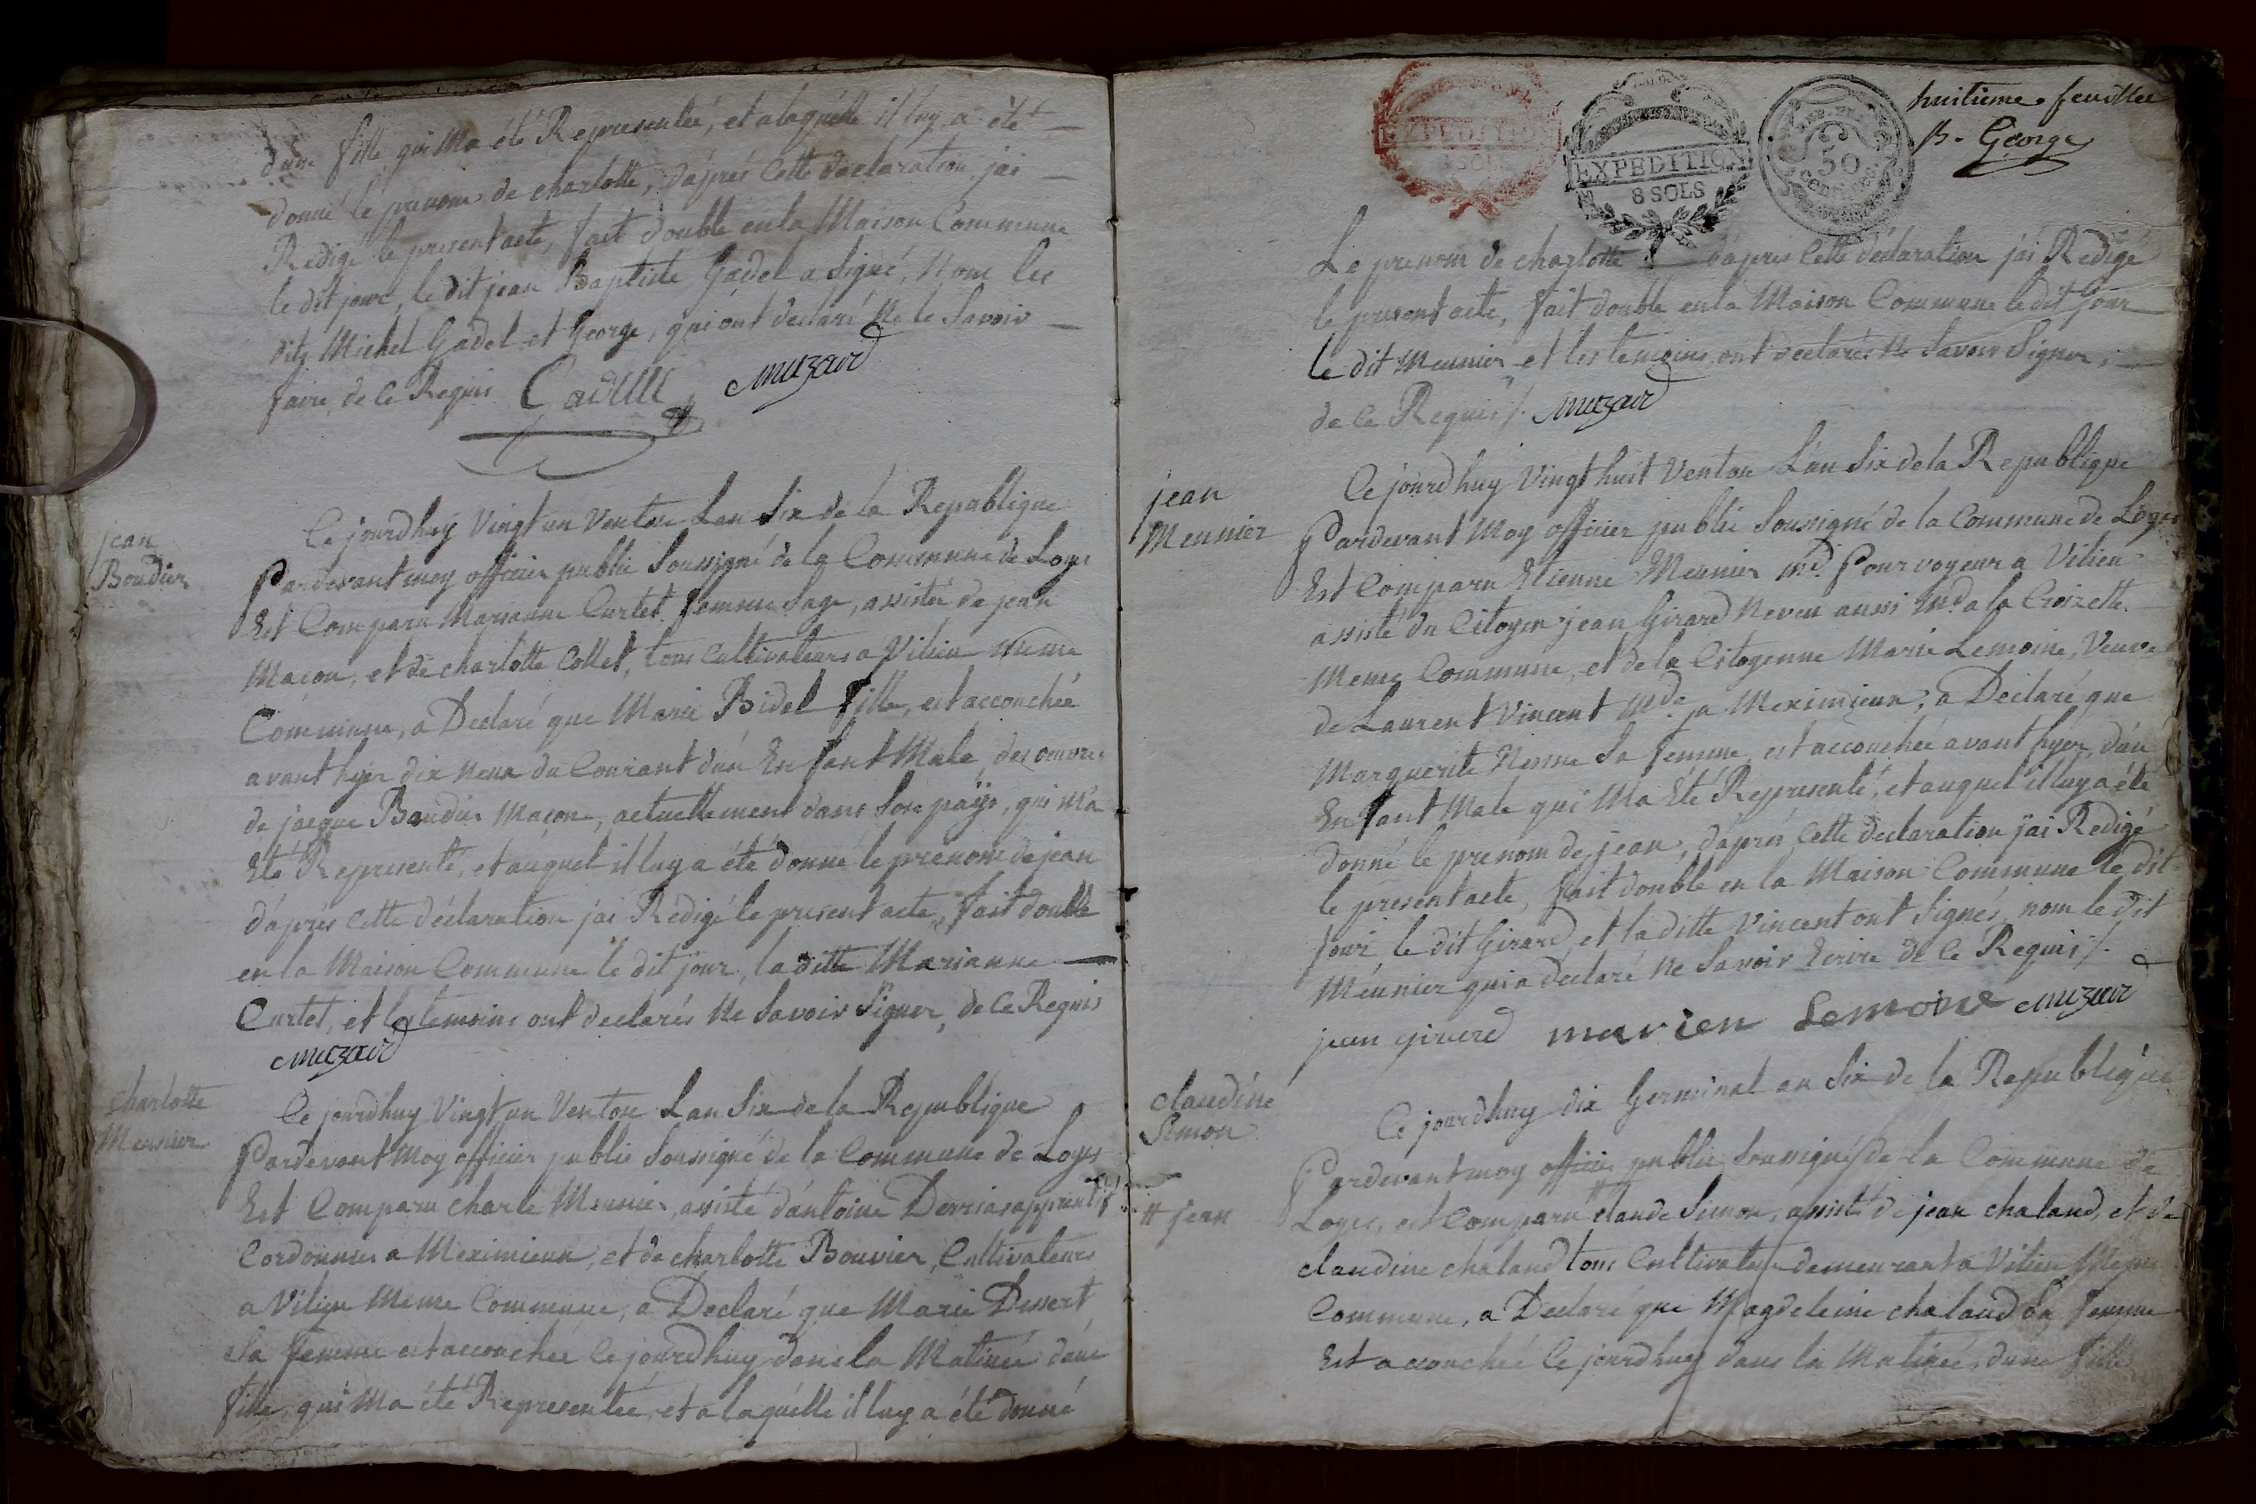 d'une fille qui Ma été Representée, et a laquelle il luy a été
donné le prenom de charlotte, d'aprés Cette declaration, jai
Redigé le present acte, fait double en la Maison Commune
le dit jour, le dit jean Baptiste Gadel a Signé, Non les
dits Michel Gadel et George, qui ont declaré Ne le Savoir
faire, de Ce Requis
Muzard
jean
Boudier
Ce jourdhuy Vingt un Ventose Lan Six de la Republique
Pardevant moy officier public Soussigné de la Commune de Loyes
Est Comparu Marianne Curtet femme Sage, assistée de jean
Macon, et de charlotte Collet, tous Cultivateurs a Vilieu meme
Commune, a Declaré que Marie Bidel fille, est accouchée
avant hyer dix neuf du Courant d'un Enfant Male, des oeuvres
de jacque Boudier Maçon, actuellement dans Son païs, qui M'a
Eté Representé, et auquel il luy a été donné le prenom de jean
d'aprés Cette déclaration j'ai Redigé le present acte, fait double
en la Maison Commune le dit jour, la ditte Marianne
Curtet, et les temoins ont declarés Ne Savoir Signer, de Ce Requis
Muzard
Charlotte
Meunier
Ce jourdhuy Vingt un Ventose Lan Six de la Republique
Pardevant Moy officier public Soussigné de la Commune de Loyes
Est Comparu Charle Meunier, assisté d'antoine Derrias apprentif
Cordonnier a Meximieux, et de charlotte Bouvier, Cultivateurs
a Vilieu Meme Commune, a Declaré que Marie Dessert
Sa femme est accouchée Ce jourdhuy dans la Matinée d'une
fille, qui Ma été Representée, et a laquelle il luy a été donné
EXPEDITION
8 SOLS
EXPEDITION
8 SOLS
50
CENTIMES
huitieme feuillet
B. George
Le prenom de charlotte d'aprés Cette déclaration j'ai Redigé
le present acte, fait double en la Maison Commune le dit jour
le dit Meunier et les temoins ont declarés Ne Savoir Signer,
de Ce Requis /. Muzard
jean
Meunier
Ce jourdhuy Vingt huit Ventose L'an Six de la Republique
Pardevant Moy officier public Soussigné de la Commune de Loyes
Est Comparu Etienne Meunier md. Pourvoyeur a Vilieu
assisté du Citoyen jean Girard Neveu aussi Md. a la Croizette
Meme Commune, et de la Citoyenne Marie Lemoine, Veuve
de Laurent Vincent Mde. a Meximieux, a Declaré que
Marguerite Nesme Sa femme, est accouchée avant hyer, d'un
Enfant Male qui Ma Eté Representé, et auquel il luy a été
donné le prenom de jean, d'aprés Cette declaration j'ai Redigé
le present acte, fait double en la Maison Commune le dit
jour, le dit Girard et la ditte Vincent ont Signés, non le dit
Meunier qui a declaré Ne Savoir Ecrire de Ce Requis /.
jean girard marien Lemoine Muzard
claudine
Simon
Ce jourdhuy dix Germinal an Six de la Republique
Pardevant moy officier public Soussigné de la Commune de
# jean
Loyes, est Comparu # claude Simon, assisté de jean chaland, et de
claudine chaland tous Cultivateurs demeurant a Vilieu Meme
Commune, a Declaré que Magdeleine chaland Sa femme
Est accouchée Ce jourdhuy dans la Matinée, d'une fille